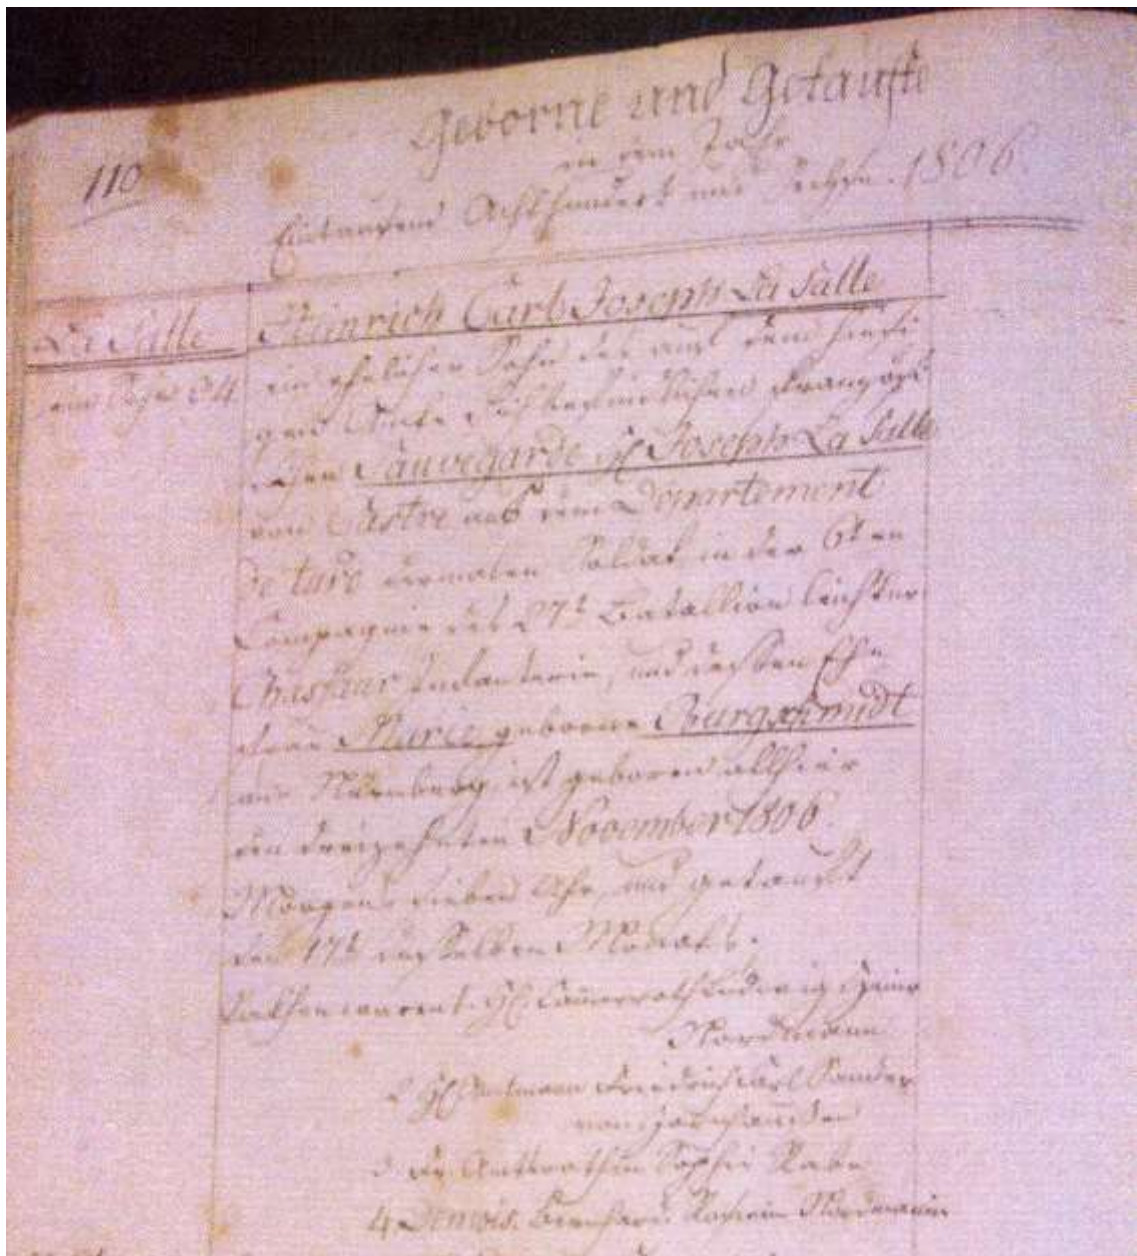 110
Geborne und Getaufte
in dem Jahr
Eintausend Achthundert und Sechse. 1806.
La Salle
Heinrich Carl Joseph La Salle
ein ehelicher Sohn des auf dem hiesi
gen Amte befindlichen Französi
schen Sauvegarde H Joseph La Salle
von Castre aus dem Departement
de tarn dermalen Soldat in der 6ten
Compagnie des 27t Batallion leichter
Chasseur Infanterie, und dessen Ehe
frau Marie geborne Burgschmidt
aus Nürnberg, ist geboren allhier
den dreizehnten November 1806.
Morgens sieben Uhr, und getauft
den 17t desselben Monats.
Pathen waren 1. H. Cammerrath Ludwig Heinr
Nordmann
2 H Amtmann Friedrich Carl Sander
von
3 Fr. Amtsräthin Sophie Rabe
4 Demois. Nordmann